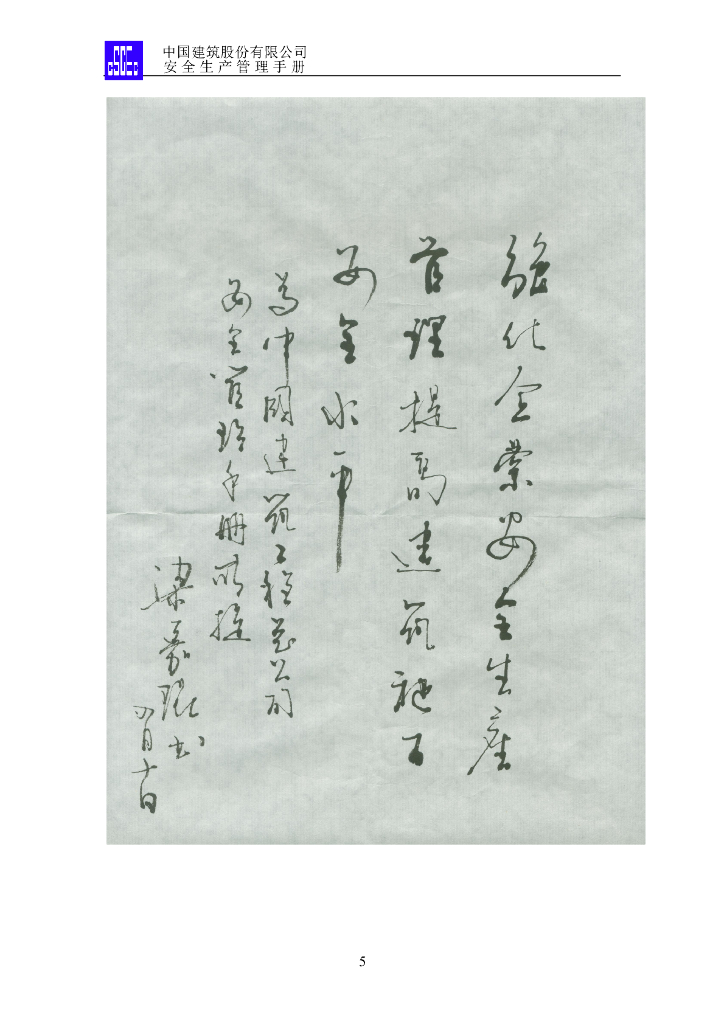 CSCEC
中国建筑股份有限公司
安全生产管理手册
强化企業安全生產
管理提高建筑施工
安全水平
為中國建筑工程总公司
安全管理手册所题
梁
书
四月十日
5